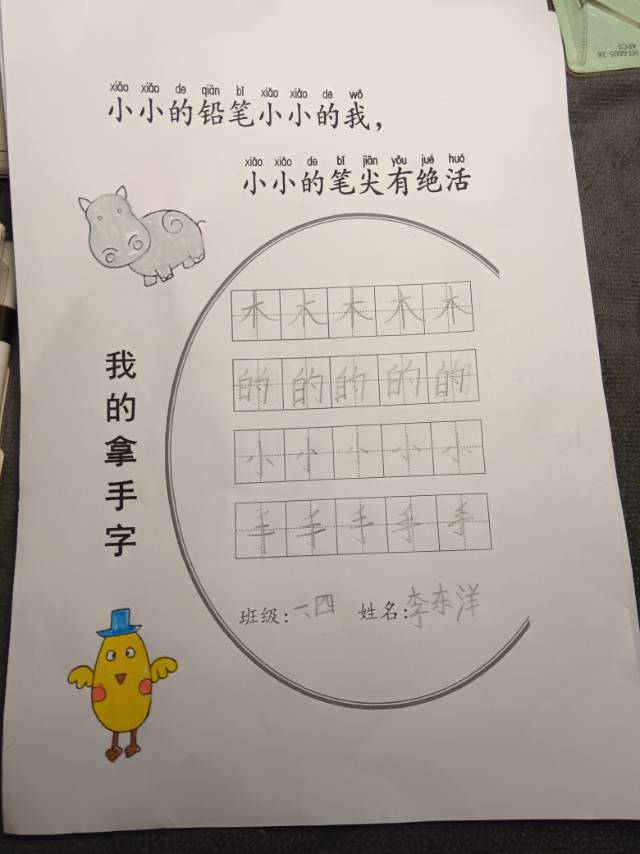 xiǎo xiǎo de qiān bǐ xiǎo xiǎo de wǒ
小小的铅笔小小的我，
xiǎo xiǎo de bǐ jiān yǒu jué huó
小小的笔尖有绝活
木木木木木
的的的的的
小小小小小
手手手手手
班级：一、四 姓名：李东洋
我的拿手字
HT-6005-28
4PCS